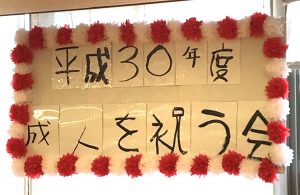 平成30年度
成人を祝う会